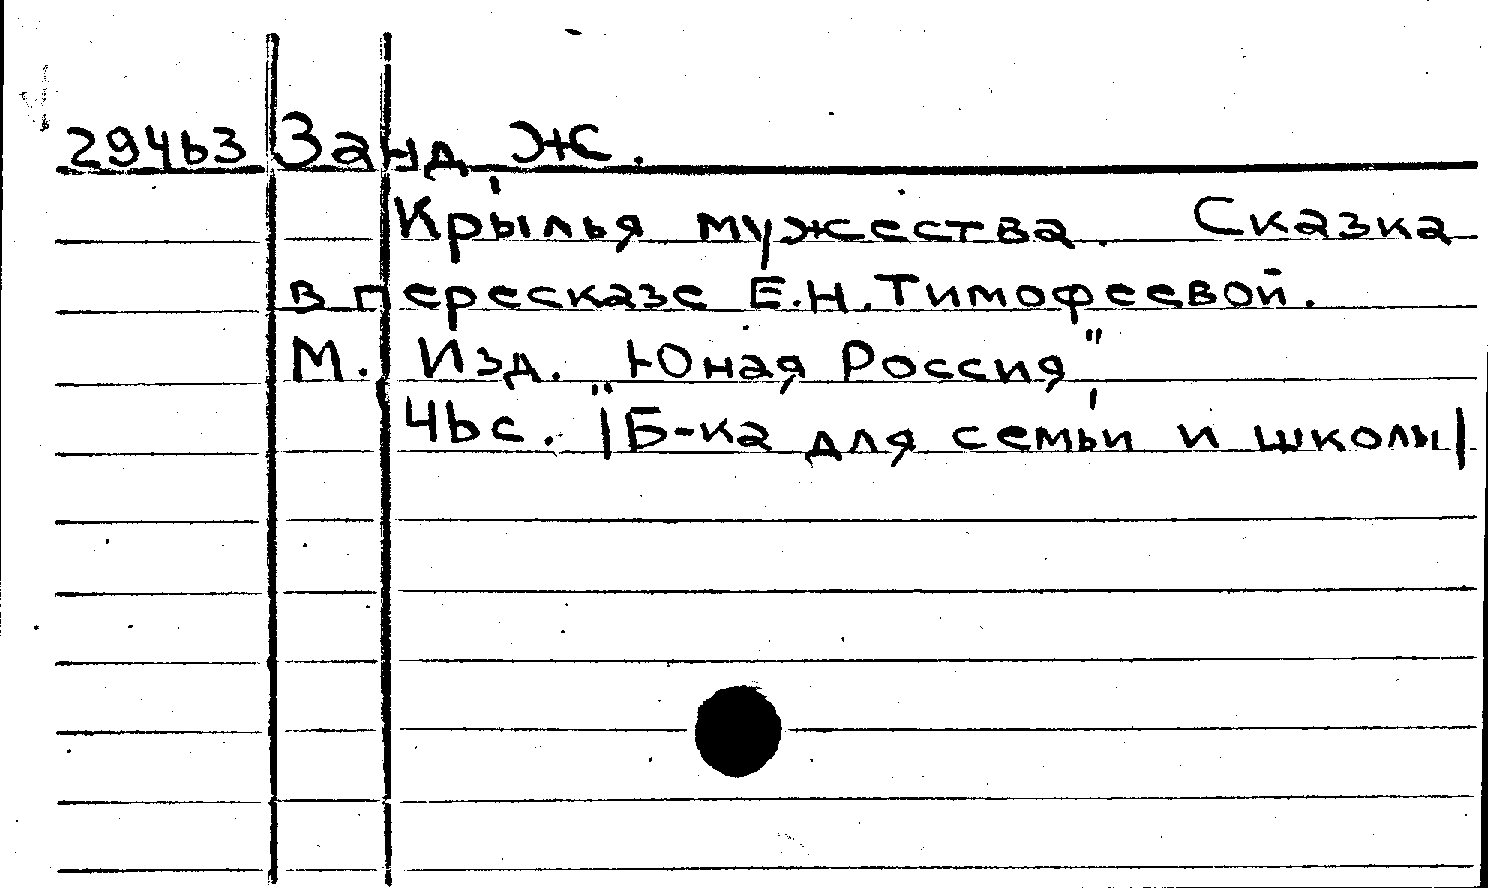 29463 Занд, Ж.
Крылья мужества. Сказка
в пересказе Е.Н.Тимофеевой.
М. Изд. "Юная Россия",
46с. /Б-ка для семьи и школы/